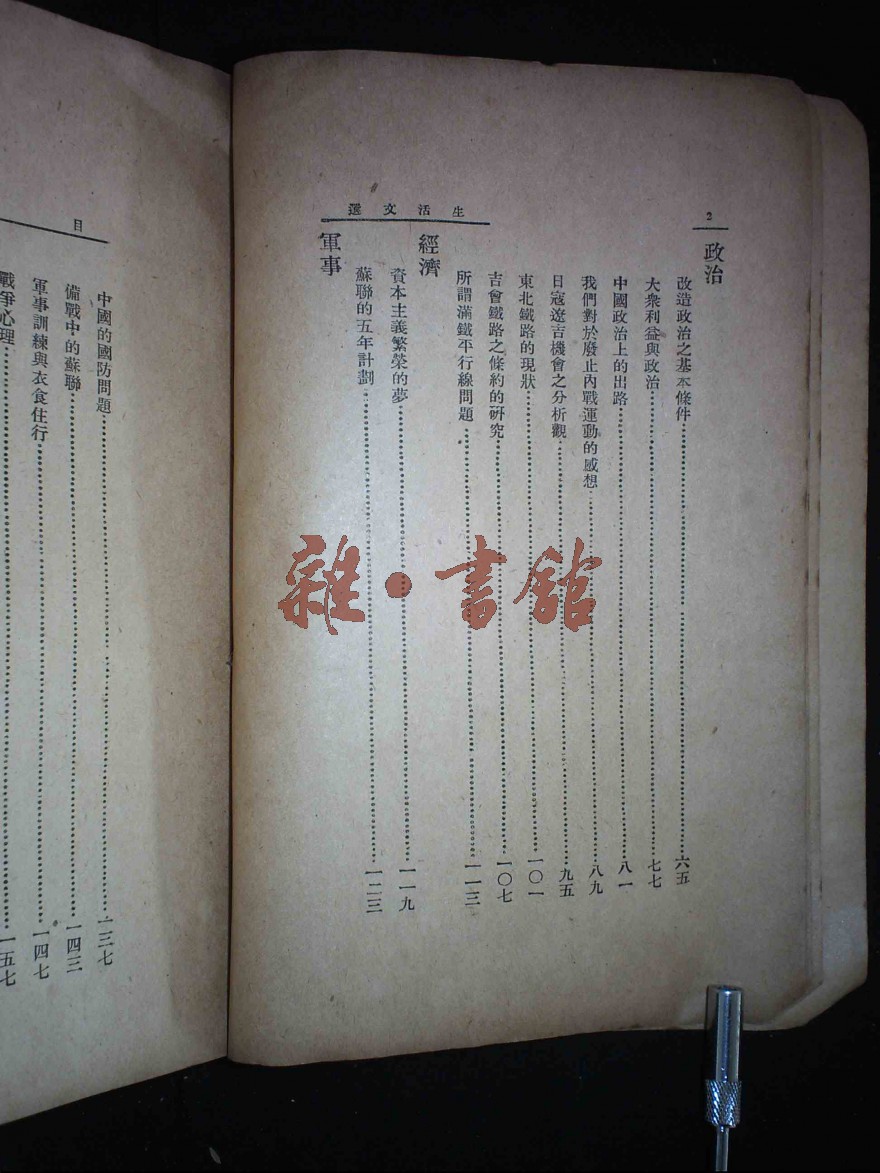 2
生活文選
政治
改造政治之基本條件 六五
大衆利益與政治 七七
中國政治上的出路 八一
我們對於廢止內戰運動的感想 八九
日寇遼吉機會之分析觀 九五
東北鐵路的現狀 一〇一
吉會鐵路之條約的研究 一〇七
所謂滿鐵平行線問題 一一三
經濟
資本主義繁榮的夢 一一九
蘇聯的五年計劃 一二三
軍事
目
中國的國防問題 一三七
備戰中的蘇聯 一四三
軍事訓練與衣食住行 一四七
戰爭心理 一五七
雜·書館